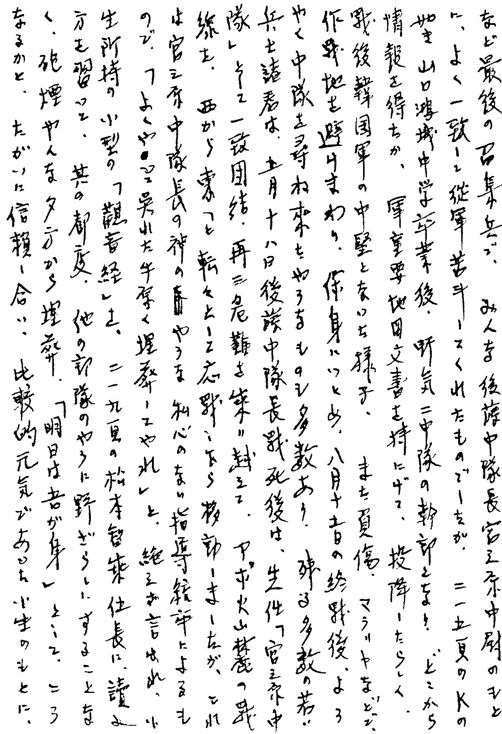 など最後の召集兵で、みんな後藤中隊長宮三原中尉のもと
に、よく一致して従軍苦斗してくれたものでしたが、二一五頁のKの
如き山口鴻城中学卒業後、呼気二中隊の幹部となり、どこから
情報を得たか、軍重要地図文書を持にげて、投降したらしく、
戦後韓国軍の中堅となった様子、また負傷、マラリヤなどで、
作戦地を避けまわり、保身につとめ、八月十五日の終戦後、よう
やく中隊を尋ね来たやうなものも多数あり、残る多数の若い
兵士諸君は、五月十八日後藤中隊長戦死後は、先任「宮三原中
隊」として一致団結、再三危難を乗り越えて、アポ火山麓の戦
線を、西から東へと転々として応戦しながら移動しましたが、これ
は宮三原中隊長の神のやうな私心のない指導統率によるも
ので、「よくやって呉れた手厚く埋葬してやれ」と、絶えず言われ、小
生所持の小型の「観音経」を、二一九頁の松本智乗住長に、読み
方を習って、其の都度、他の部隊のやうに野ざらしにすることな
く、砲煙やんな夕方から埋葬、「明日は吾が身」として、ころ
なるかと、たがいに信頼し合い、比較的元気であった小生のもとに、